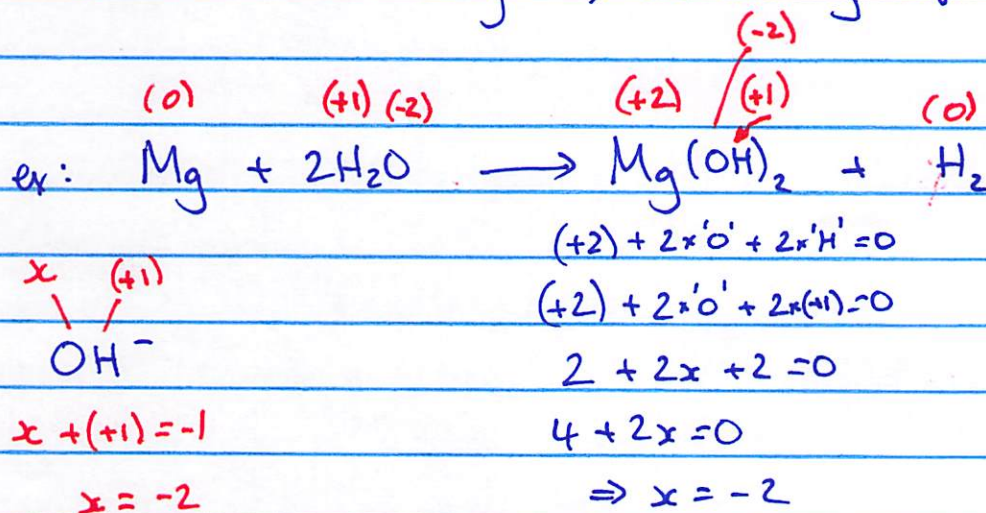 (-2)
(0) (+1) (-2) (+2) (+1) (0)
ex: Mg + 2H₂O ⟶ Mg(OH)₂ + H₂
(+2) + 2x'O' + 2x'H' = 0
x (+1)
(+2) + 2x'O' + 2x(+1) = 0
OH⁻
2 + 2x + 2 = 0
x + (+1) = -1
4 + 2x = 0
x = -2
⇒ x = -2